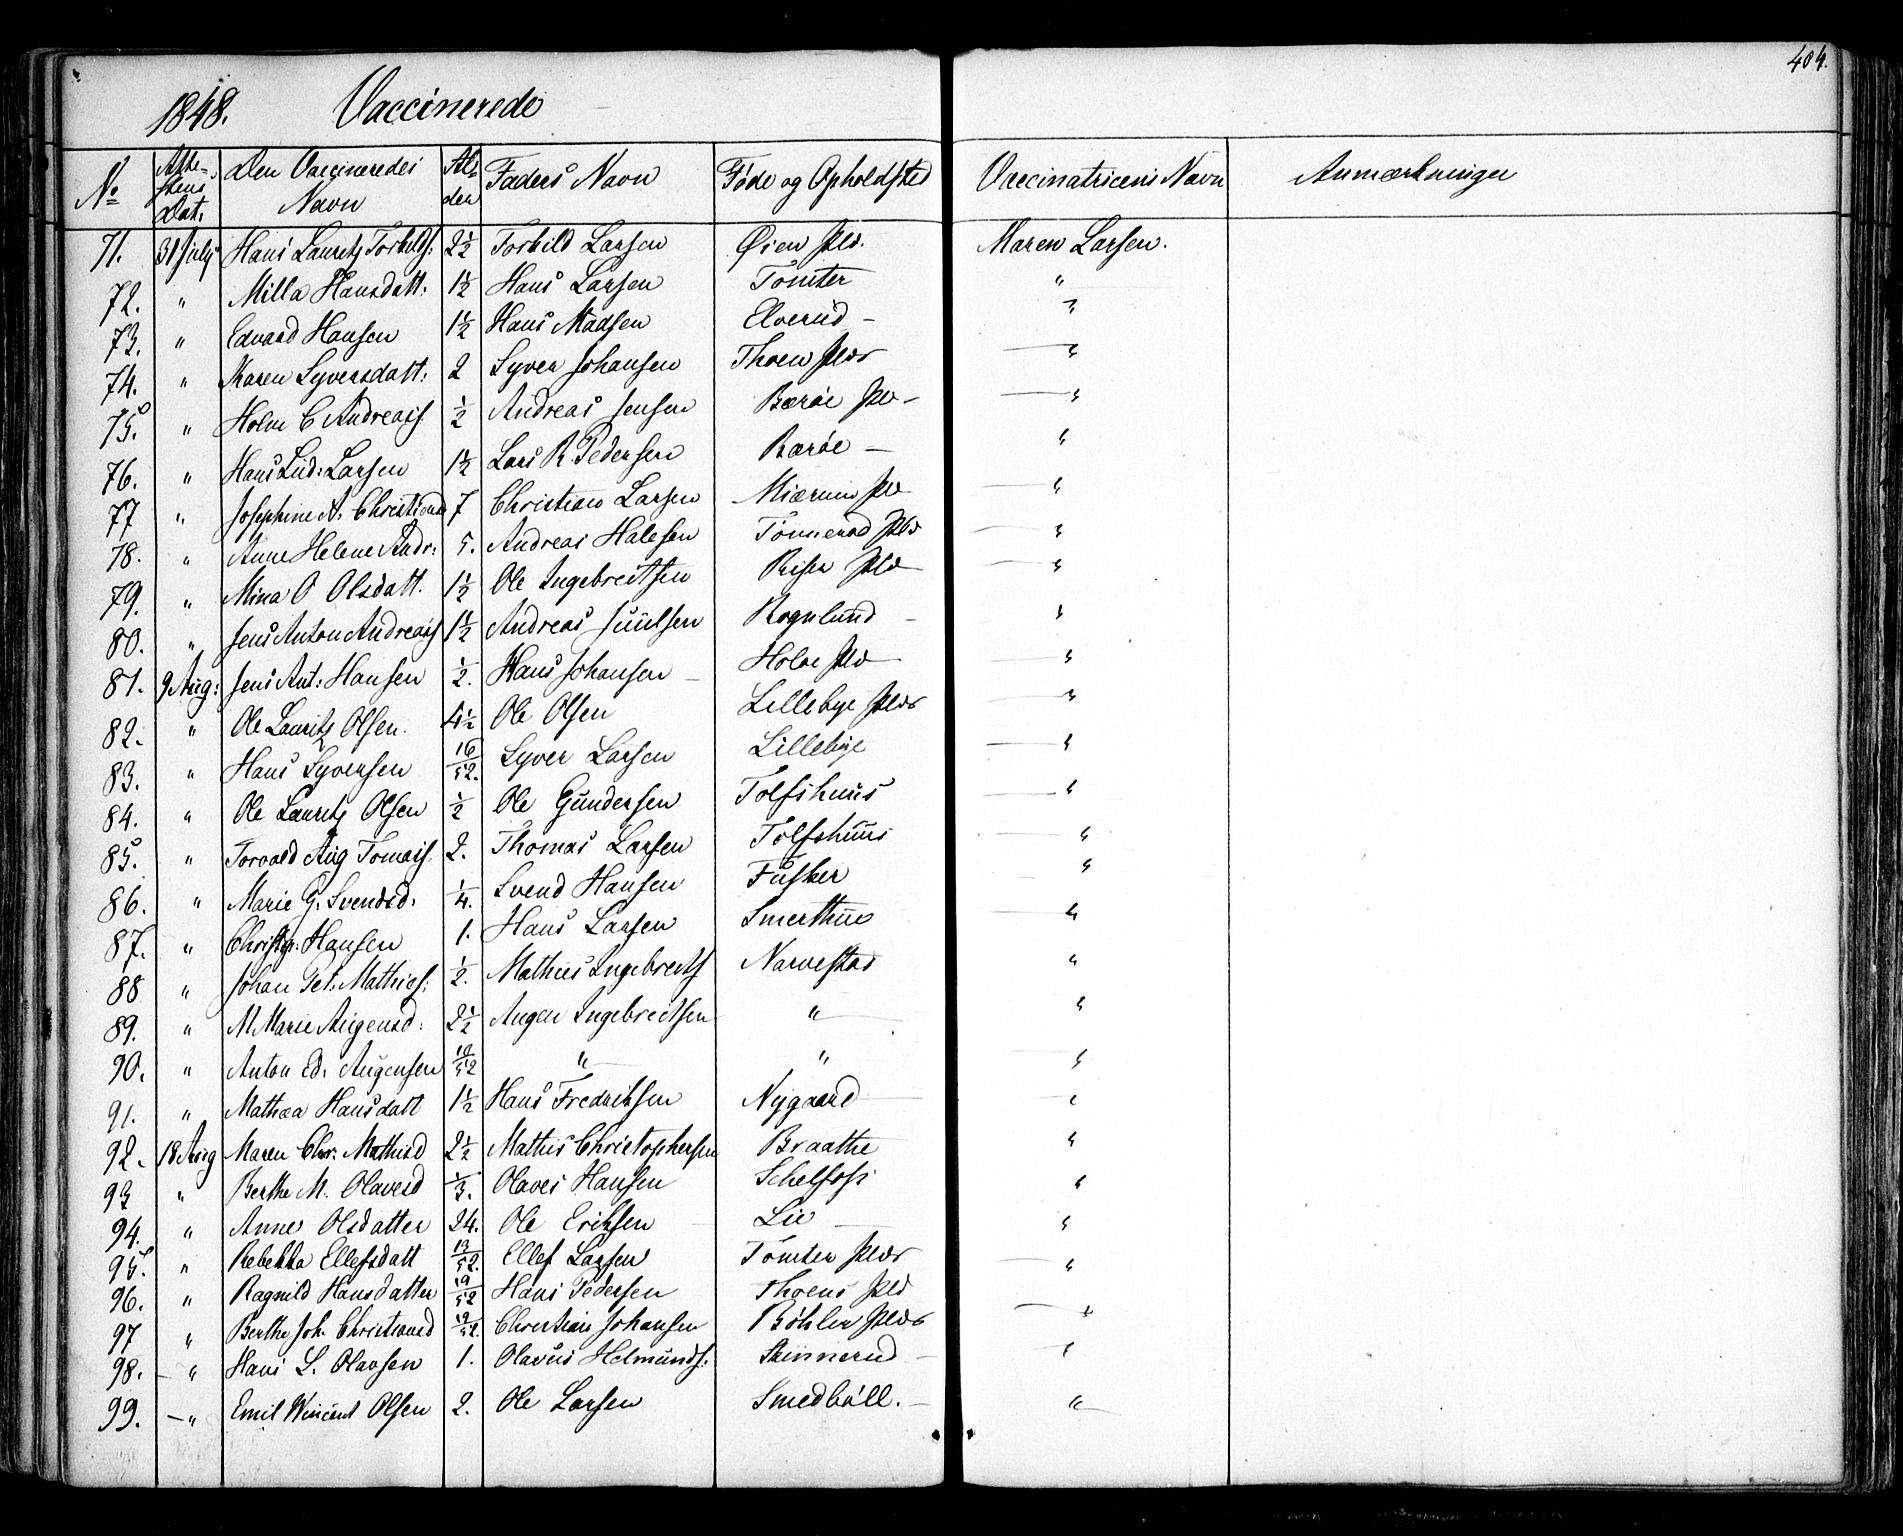 404.
1848. Vaccinerede
No Atte-stens Dat. Den Vaccineredes Navn Al-der Faders Navn Føde og Opholdsted Vaccinatricens Navn Anmærkninger
71. 31 July Hans Lauritz Torkilds: 2½ Torkild Larsen Øien Plds. Maren Larsen.
72. " Milla Hansdatt: 1½ Hans Larsen Tomter "
73. " Edvard Hansen 1½ Hans Madsen Elverud – "
74. " Maren Syversdatt: 2 Syver Johansen Thoen Plds "
75. " Holm C Andreass. ½ Andreas Jensen Bærøe Plds – "
76. " Hans Lud: Larsen 1½ Lars R. Pedersen Bærøe – "
77 " Josephine A. Christiansd 7 Christian Larsen Miærum Pld "
78. " Anne Helene Andr: 5. Andreas Halesen Tonnerud Plds "
79. " Mina O Olsdatt. 1½ Ole Ingebreitsen Riser Pld "
80. " Jens Anton Andreass 1½ Andreas Juulsen Rognlund – "
81. 9 Aug: Jens Ant: Hansen ½. Hans Johansen – Holoe Pld "
82. " Ole Lauritz Olsen. 4½ Ole Olsen Lillebye Plds "
83. " Hans Syversen 16/52. Syver Larsen Lillebye "
84. " Ole Lauritz Olsen ½ Ole Gundersen Tolfshuus "
85. " Torvald Aug Tomass. 2. Thomas Larsen Tolfshuus "
86. " Marie G. Svendsd. ¼. Svend Hansen Fusker "
87. " Christ: Hansen 1. Hans Larsen Smerthuu "
88 " Johan Pet. Mathies: ½. Mathies Ingebreits Narvestad "
89. " M Marie Augensd. 2½ Augen Ingebreitsen " "
90. " Anton Ed. Augensen 10/52 " " "
91. " Mathea Hansdatt 1½ Hans Fredriksen Nygaard "
92. 18 Aug Maren Chr: Mathisd 2½ Mathis Christophersen Braathe "
93 " Berthe M. Olavesd ⅓. Olaves Hansen Schelfoss "
94. " Anne Olsdatter 24. Ole Eriksen Lie "
95. " Rebekka Ellefsdatt 13/52. Ellef Larsen Tomter Plds "
96. " Ragnild Hansdatter 19/52 Hans Pedersen Thoens Pld
97 " Berthe Joh. Christiansd 12/52. Christian Johansen Bøhler Plds "
98. – " Hans L. Olavsen 1. Olavus Helmunds: Skinnerud – "
99. – " Emil Wincent Olsen 2. Ole Larsen Smedbøll. – "